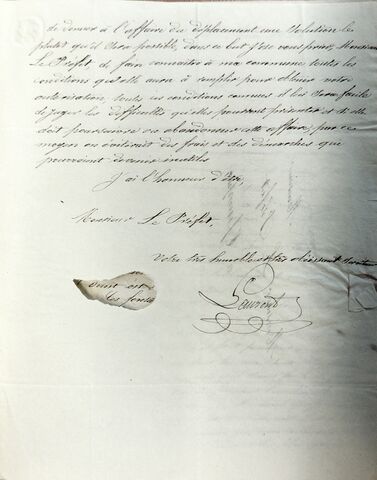 de donner à l'affaire du déplacement une solution le
plutôt qu'il sera possible, dans ce but j'ose vous prier, Monsieur
Le Préfet de faire connaitre à ma commune toutes les
conditions qu'elle aura à remplir pour obtenir votre
autorisation, toutes ces conditions connues il lui sera facile
de juger les difficultés qu'elles pourront présenter et si elle
doit poursuivre ou abandonner cette affaire, par ce
moyen on éviterait des frais et des démarches que
pourraient devenir inutiles
J'ai l'honneur d'être,
Monsieur Le Préfet,
Votre très humble et très obéissant Serviteur
Laurent
les forêts